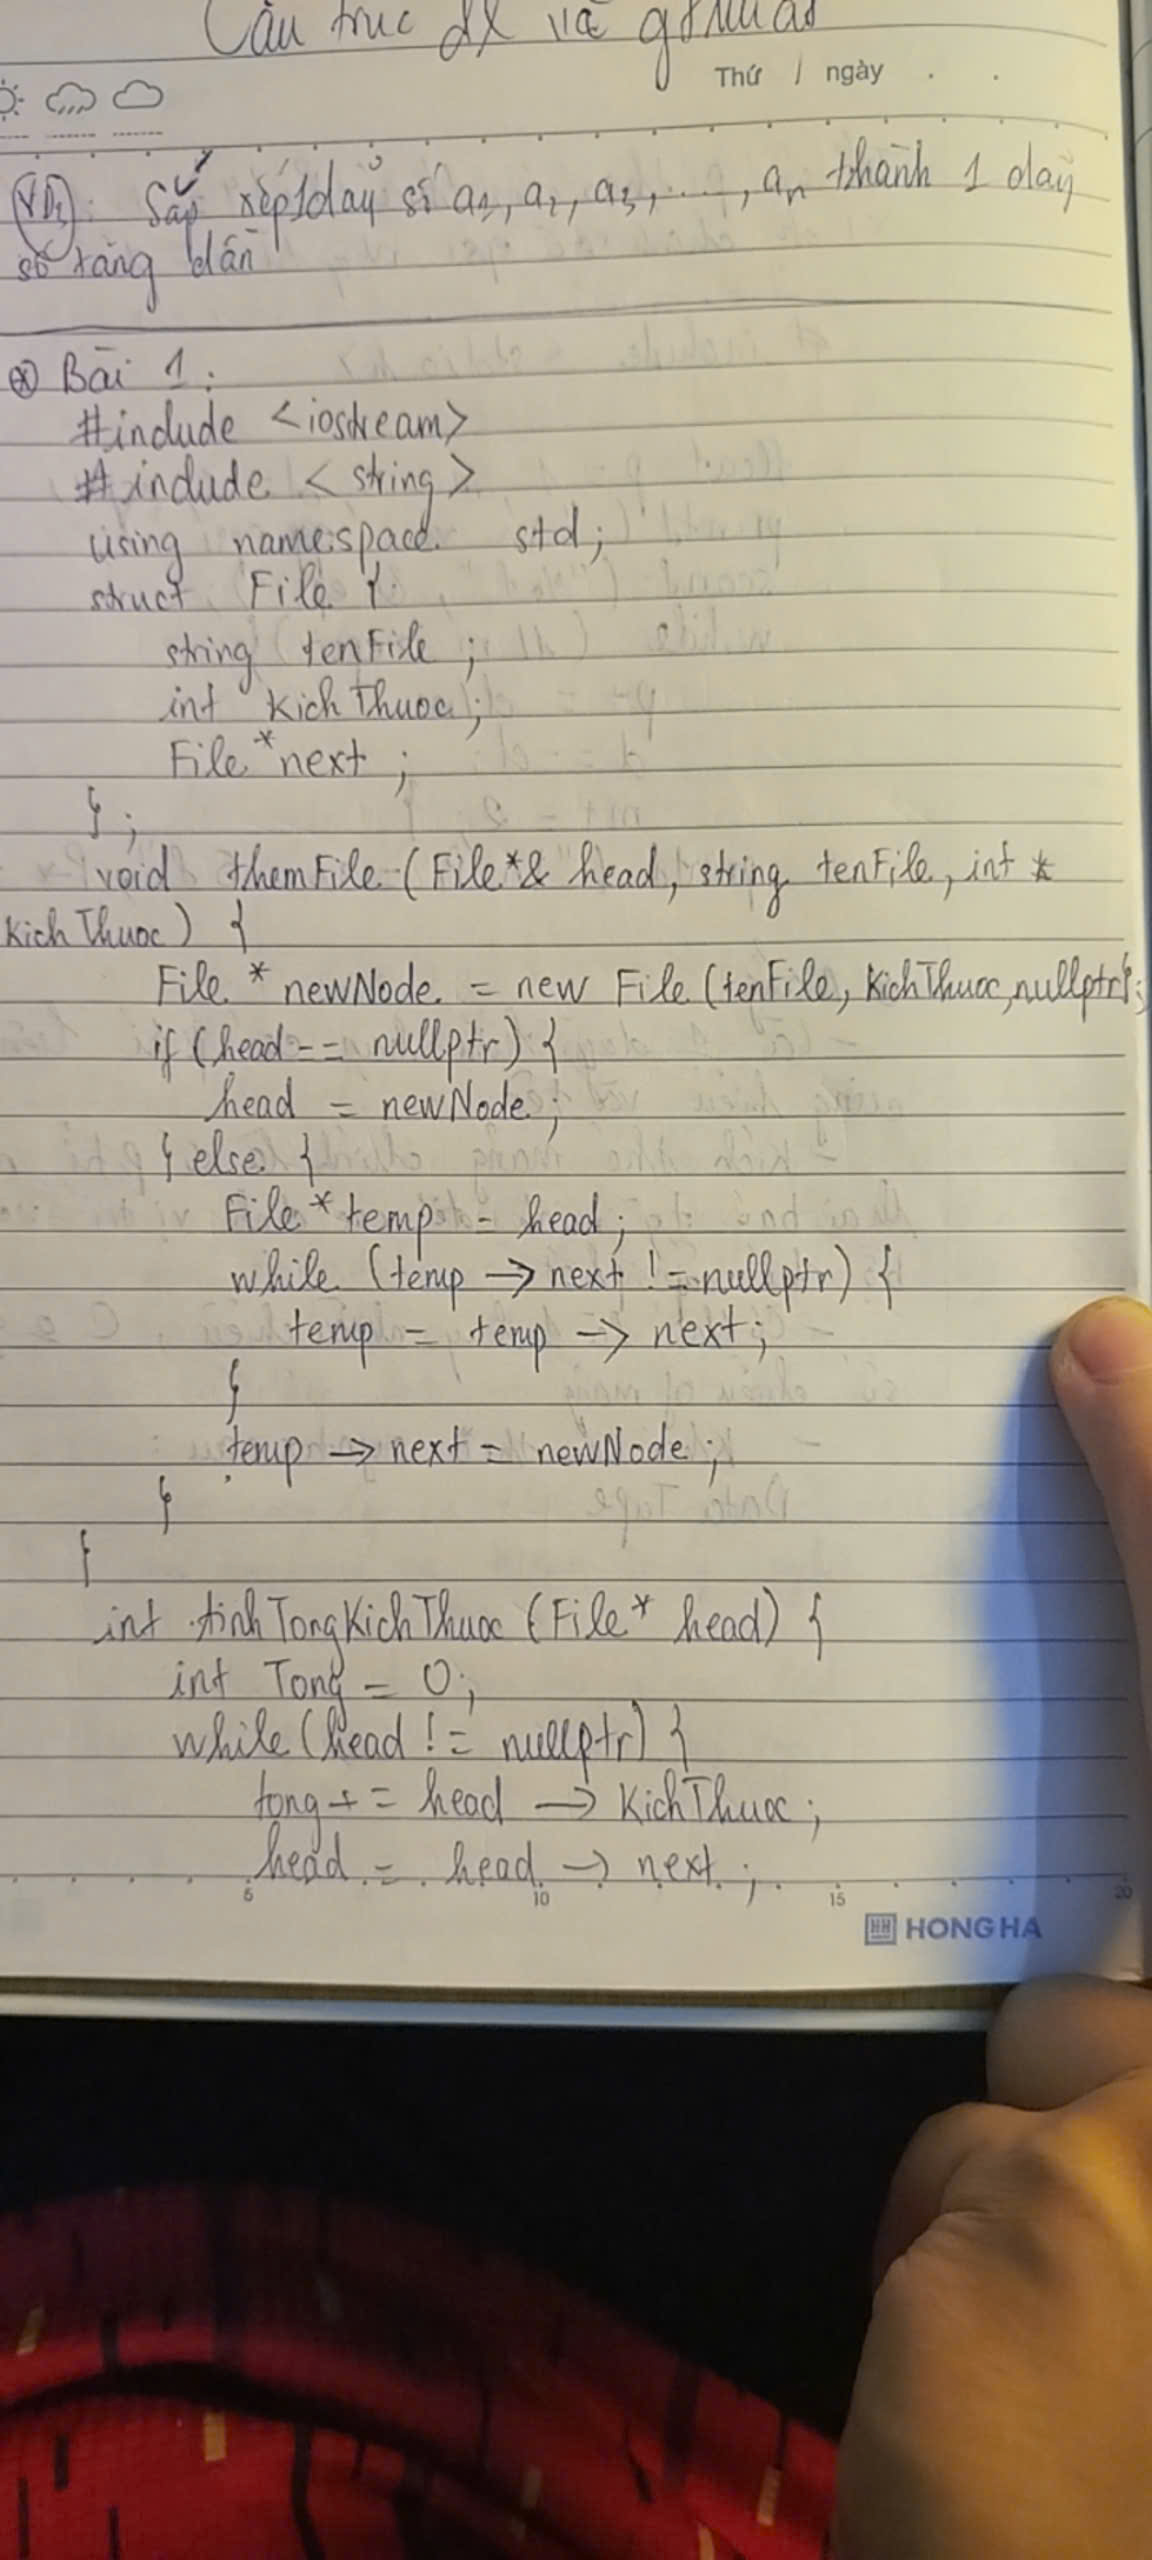 Cấu trúc dl và gt
Thứ / ngày
VD1: Sắp xếp 1 dãy số a1, a2, a3, ..., an thành 1 dãy
số tăng dần
Bài 1:
#include <iostream>
#include <string>
using namespace std;
struct File {
string tenFile;
int KichThuoc;
File *next;
};
void themFile (File*& head, string tenFile, int *
KichThuoc) {
File * newNode = new File (tenFile, KichThuoc, nullptr);
if (head == nullptr) {
head = newNode;
} else {
File * temp = head;
while (temp -> next != nullptr) {
temp = temp -> next;
}
temp -> next = newNode;
}
}
int tinhTongKichThuoc (File* head) {
int Tong = 0;
while (head != nullptr) {
tong += head -> KichThuoc;
head = head -> next;
5 10 15 20
HH HONG HA